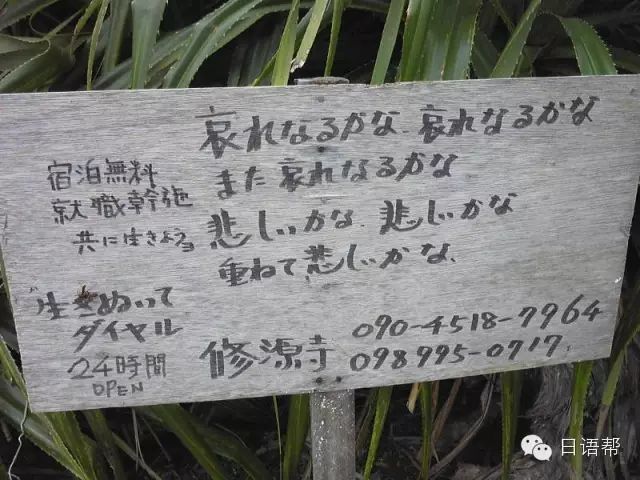 哀れなるかな、哀れなるかな
また哀れなるかな
悲しいかな、悲しいかな
重ねて悲しいかな、
宿泊無料
就職幹施
共に生きよう
生きぬいて
ダイヤル
24時間
OPEN
修源寺
090-4518-7964
098995-0717
日语帮